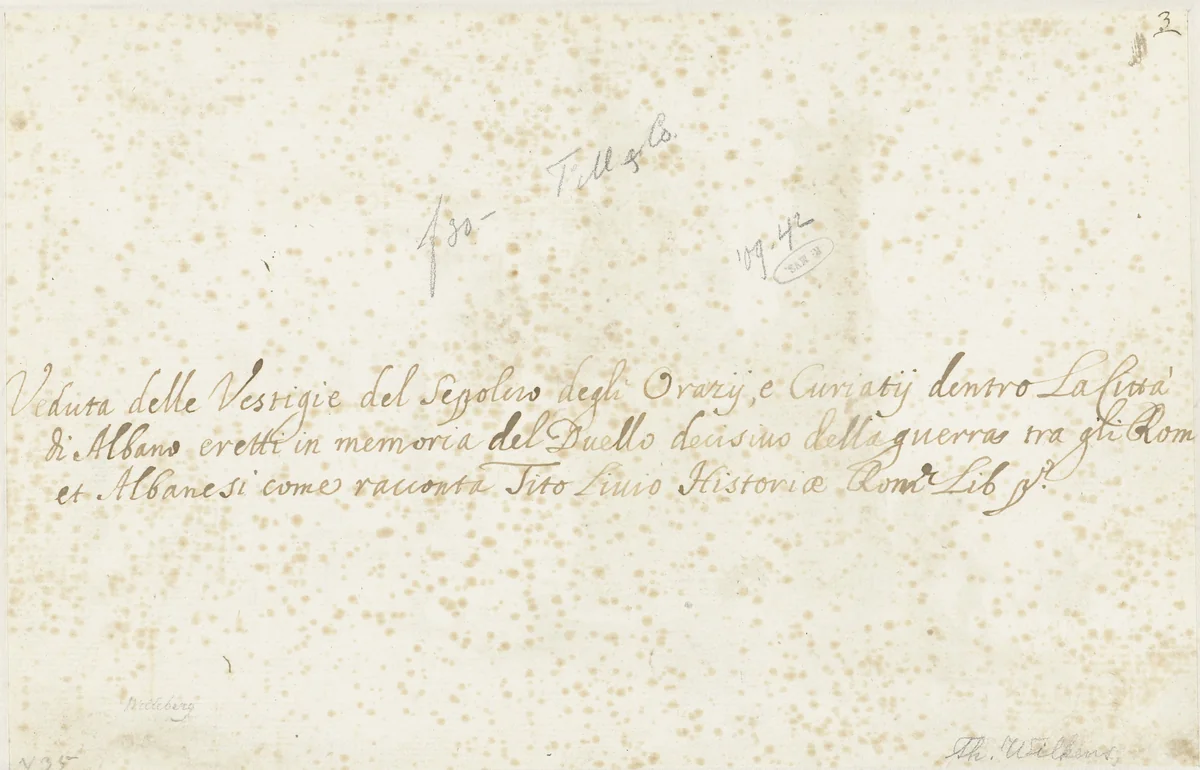 3
Tell & Co.
f 30-
'09·42
Veduta delle Vestigie del Sepolcro degli Orazij, e Curiatij dentro La Città
di Albano eretti in memoria del Duello decisivo della guerra tra gli Rom
et Albanesi come racconta Tito Livio Historiæ Rom:e Lib p:o
Th. Wilkens